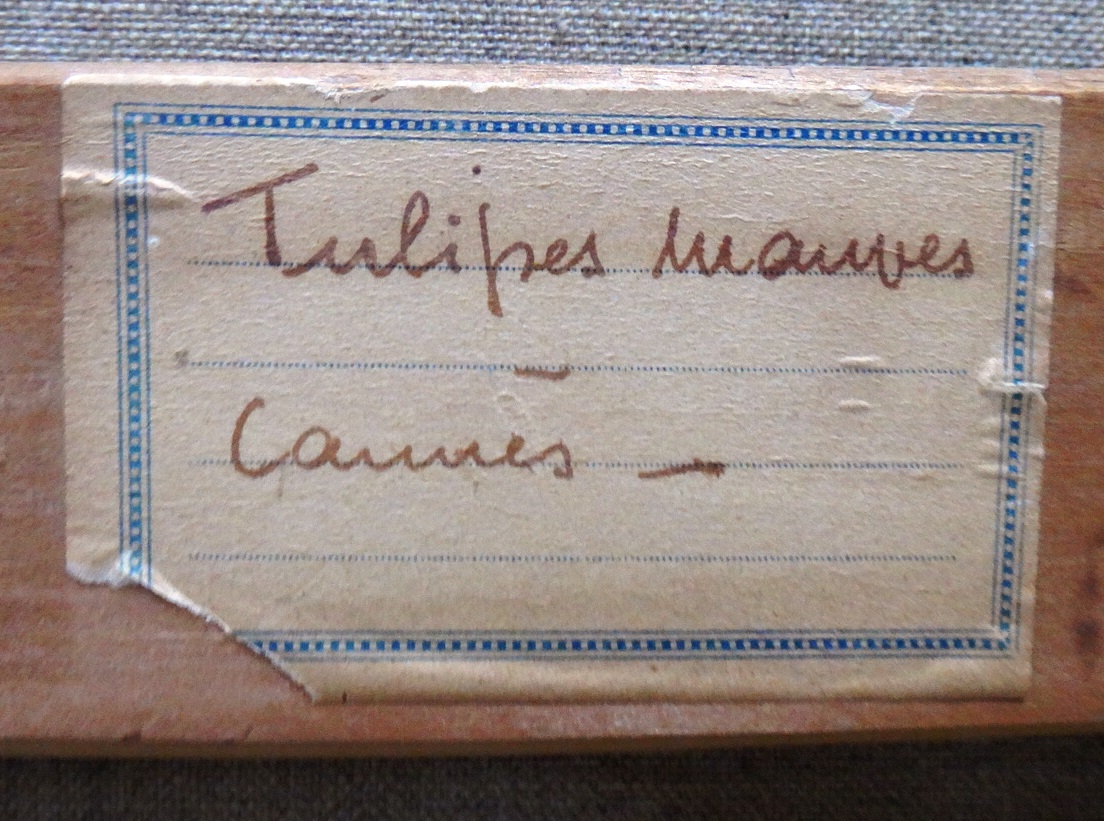 Tulipes mauves
—
Cannes —